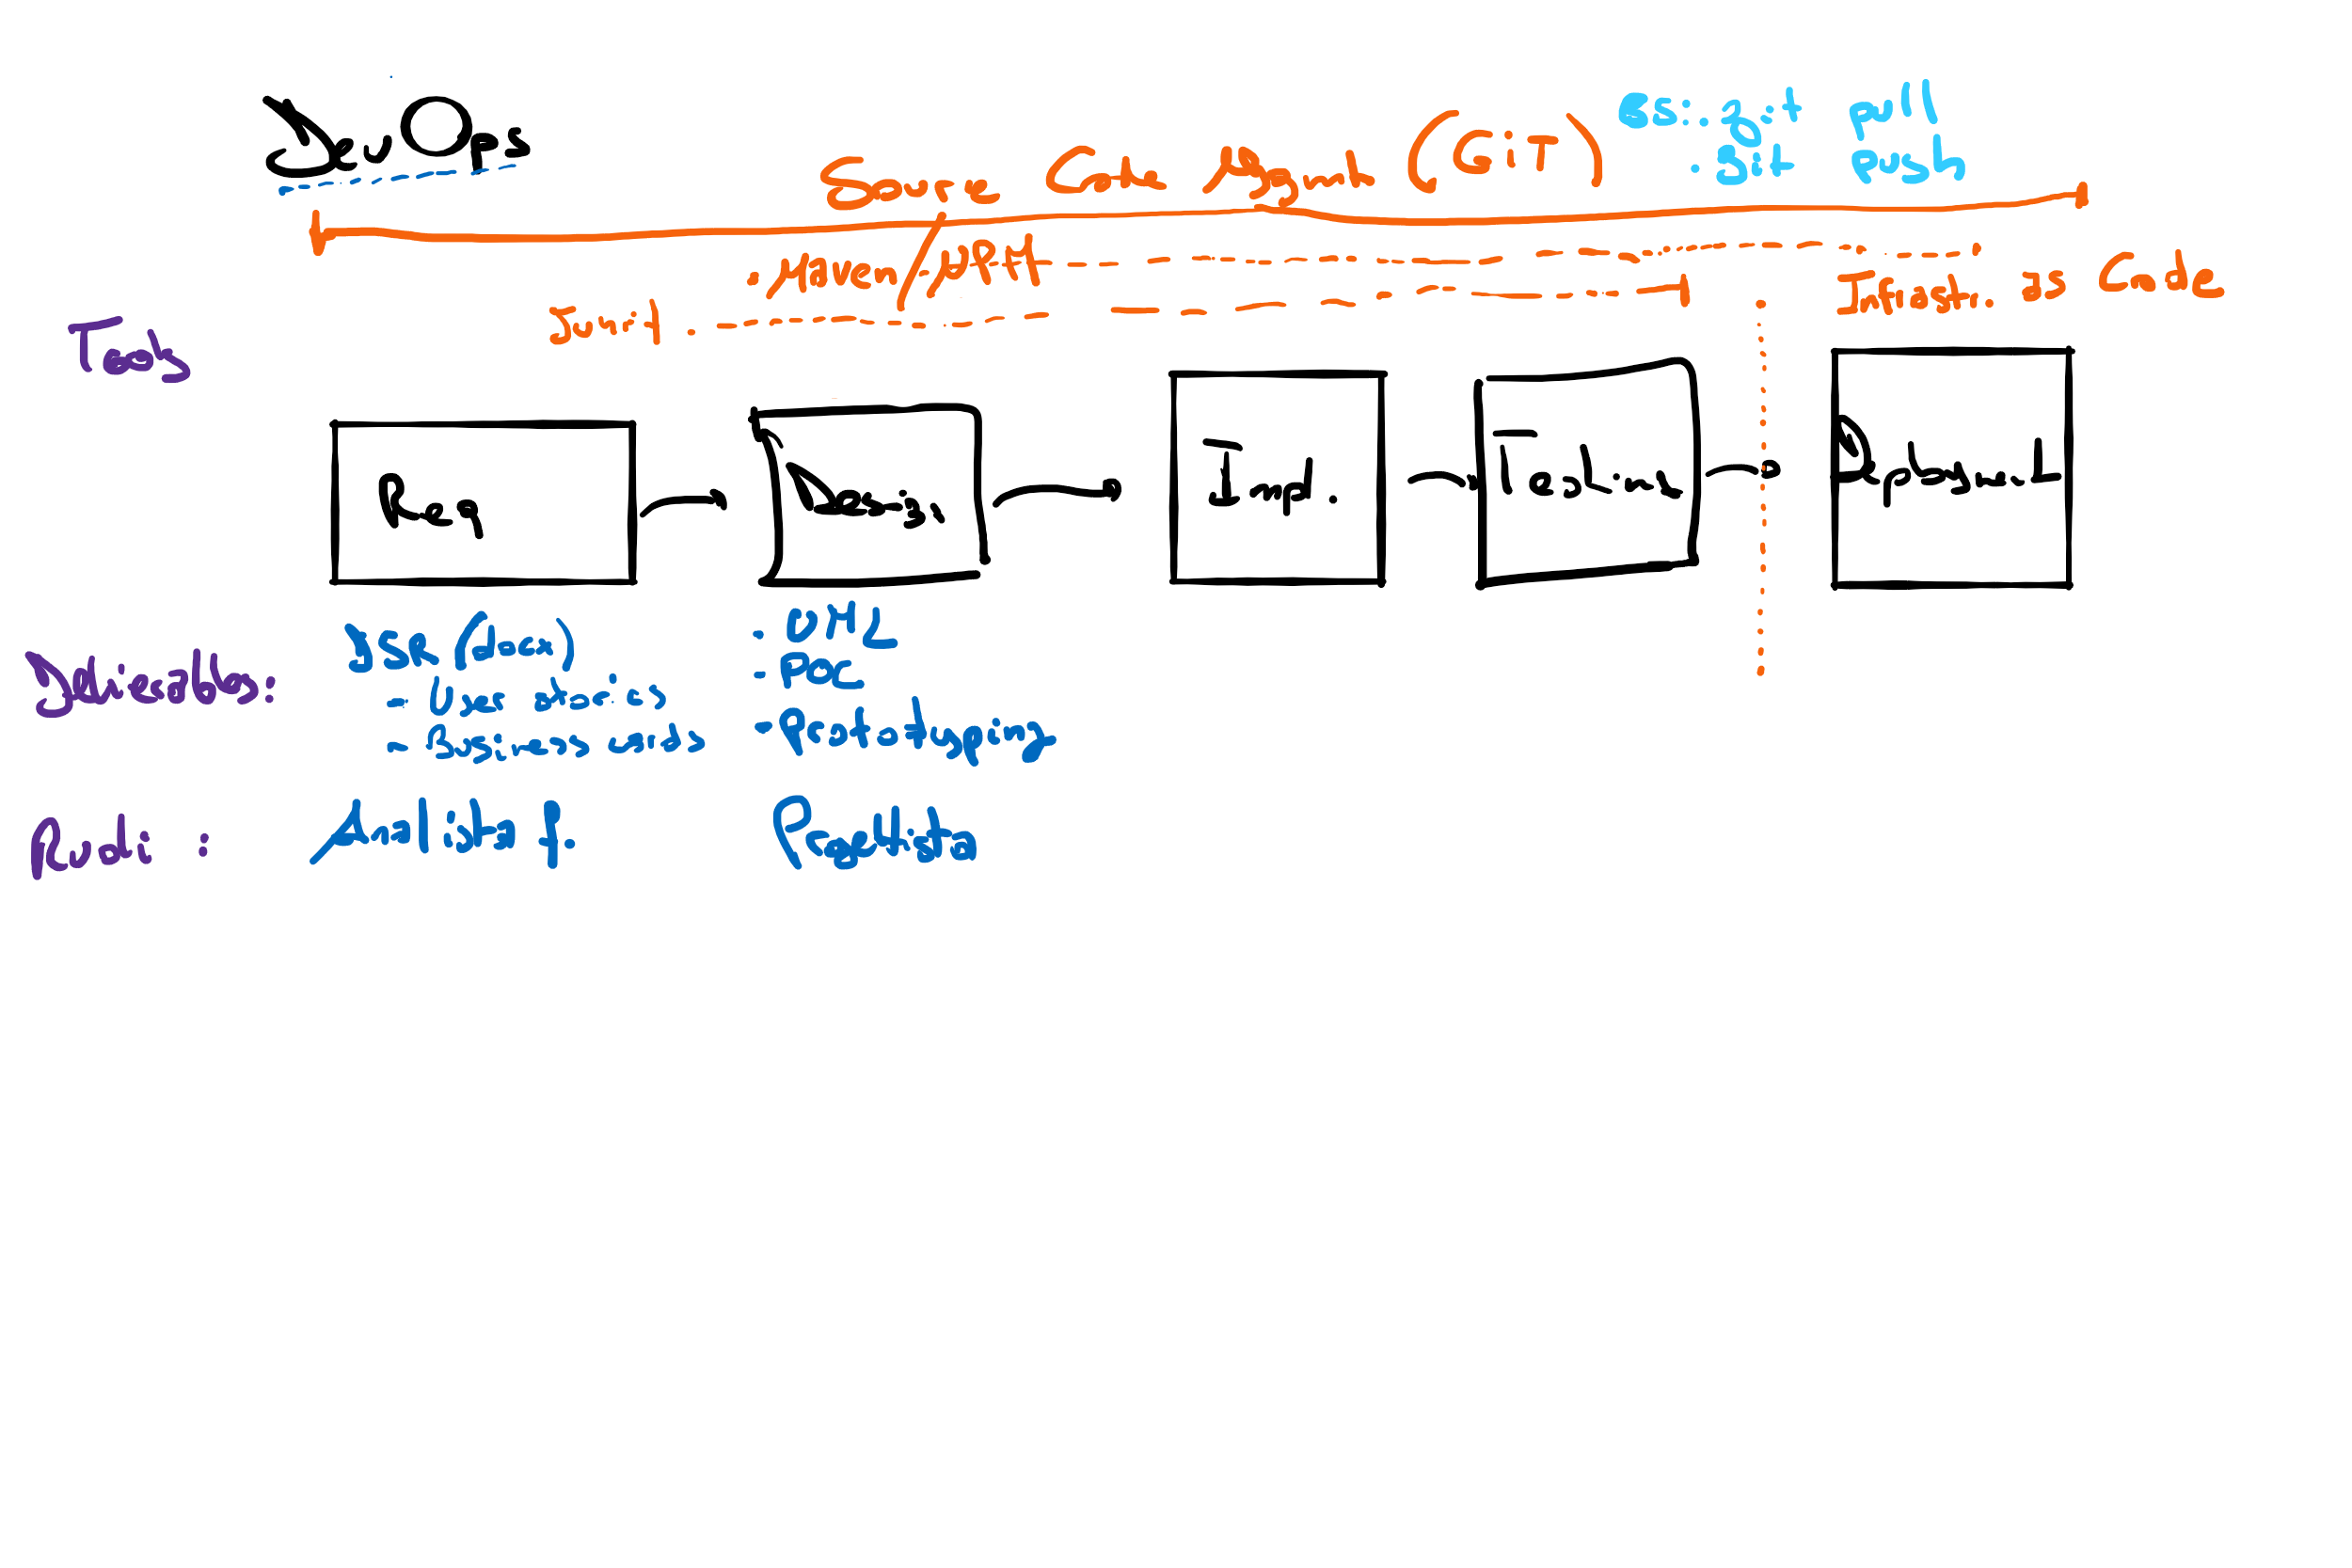 DevOps
Source Code Mgmt (GiT)
Es: . git pull
. git push
. Maven / NPM
Infrastr. as Code
Junit
Tools
Req
Design
Impl.
Testing
Deployment
Deliverables:
DSR (docx)
- User stories
- Business needs
- UML
- POC
- Prototyping
Ruoli :
Analista P.
Progettista